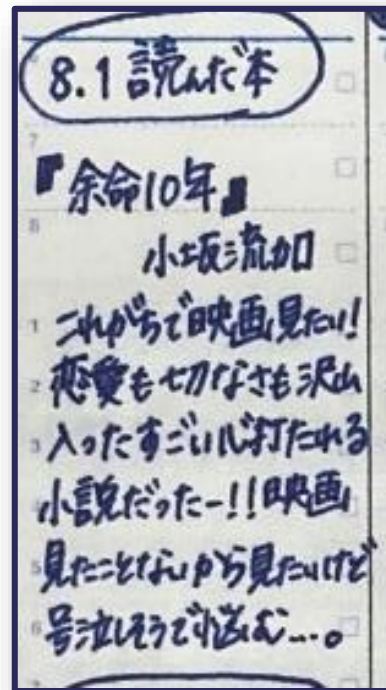 8.1 読んだ本
『余命10年』
小坂流加
これがちで映画見たい!
恋愛も切なさも沢山
入ったすごい心打たれる
小説だったー!!映画
見たことないから見たいけど
号泣しそうで悩む…。